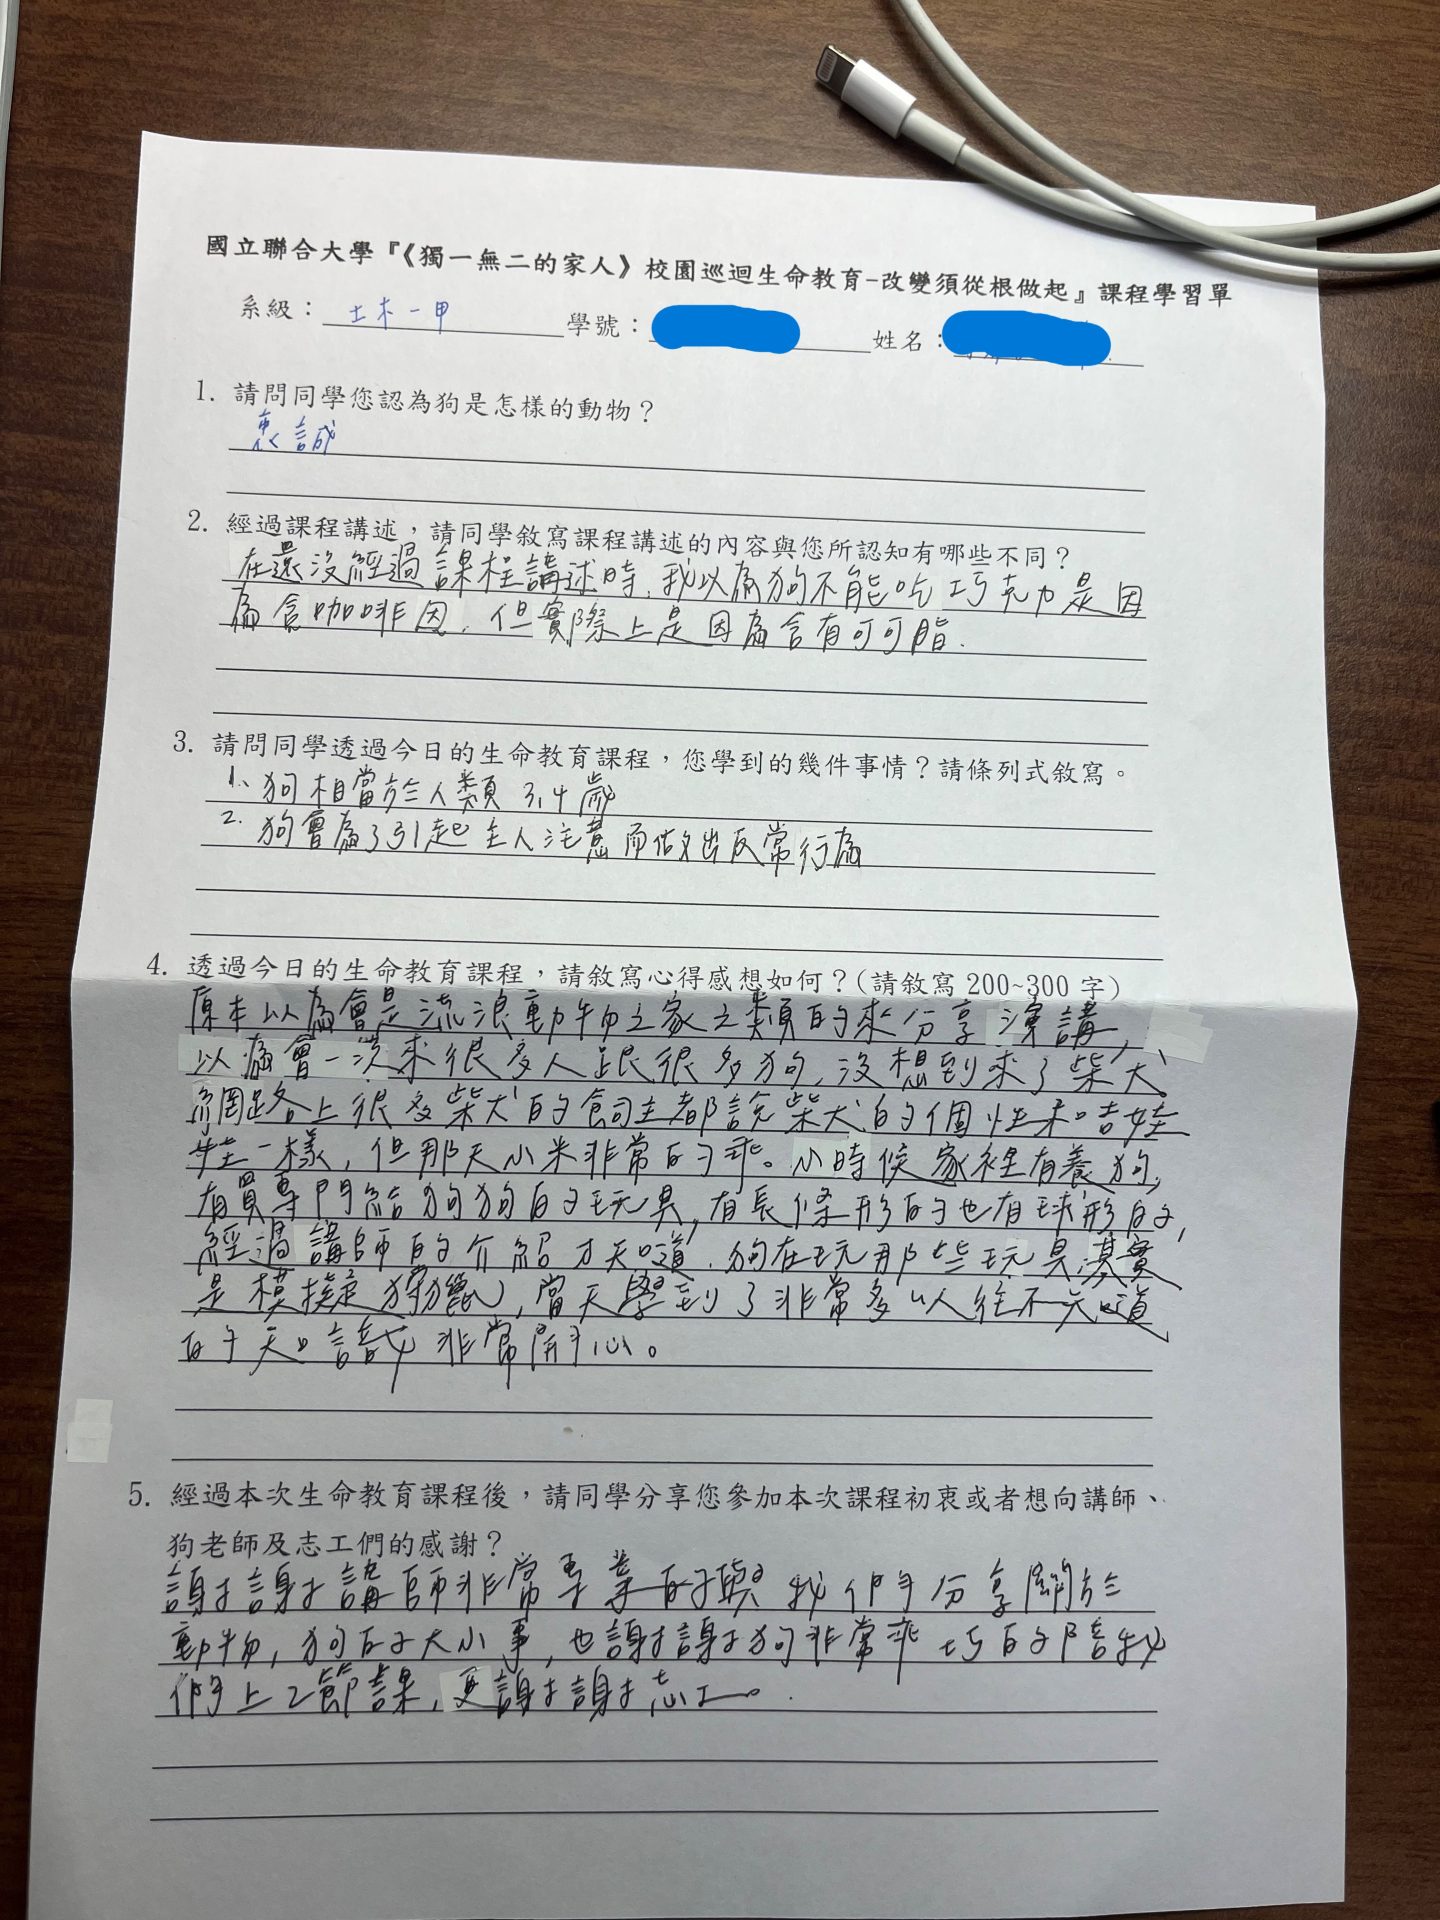 國立聯合大學『《獨一無二的家人》校園巡迴生命教育-改變須從根做起』課程學習單
系級：土木一甲 學號： 姓名：
1. 請問同學您認為狗是怎樣的動物？
衷誠
2. 經過課程講述，請同學敘寫課程講述的內容與您所認知有哪些不同？
在還沒經過課程講述時，我以為狗不能吃巧克力是因
為含咖啡因，但實際上是因為含有可可脂.
3. 請問同學透過今日的生命教育課程，您學到的幾件事情？請條列式敘寫。
1. 狗相當於人類3,4歲
2. 狗會為了引起主人注意而做出反常行為
4. 透過今日的生命教育課程，請敘寫心得感想如何？(請敘寫200~300字)
原本以為會是流浪動物之家之類的來分享演講，
以為會一次來很多人跟很多狗，沒想到來了柴犬、
網路上很多柴犬的飼主都說柴犬的個性和吉娃
娃一樣，但那天小米非常的乖。小時候家裡有養狗，
有買專門給狗狗的玩具，有長條形的也有球形的，
經過講師的介紹才知道，狗在玩那些玩具其實
是模擬狩獵，當天學到了非常多以往不知道
的知識 非常開心。
5. 經過本次生命教育課程後，請同學分享您參加本次課程初衷或者想向講師、
狗老師及志工們的感謝？
謝謝講師非常專業的與我們分享關於
動物，狗的大小事，也謝謝狗非常乖巧的陪我
們上2節課，更謝謝志工。